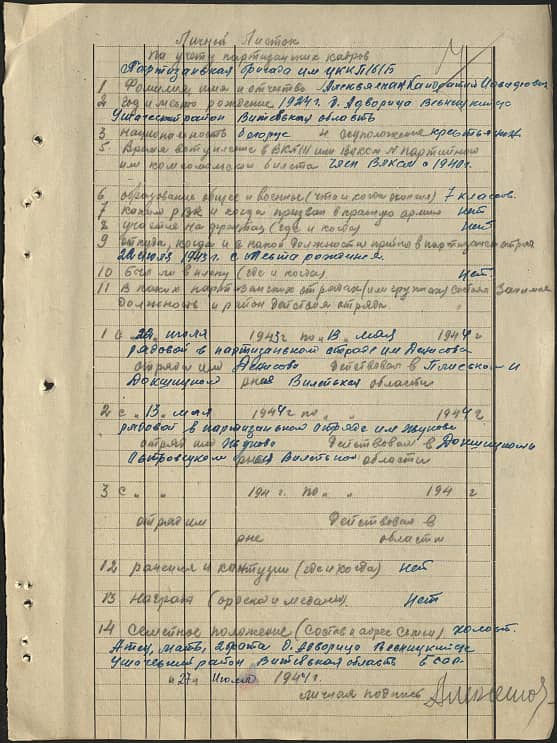 Личной Листок
по учету партизанских кадров
Партизанская бригада им ЦККП/б/Б
1 Фамилия имя и отчество
2 год и место рождение 1924 г. д. Адворица
Ушачский район Витебская область
3 Национальность белорус 4 соцположение крестьянин
5 Время вступление в ВКП/б или ВЛКСМ N партийного
или комсомольского билета член ВЛКСМ с 1940 г.
6 образование общее и военное (что и когда окончил) 7 классов.
7 каким РВК и когда призван в красную армию нет
8 участия на фронтах (где и когда) нет
9 откуда, когда и с какой должности прибыл в партизанск отряд
22 июля 1943 г. с места рождения.
10 был ли в плену (где и когда). нет.
11 В каких партизанских отрядах (или группах) состоял Занимая
должность и район действия отряда.
1 с 22 июля 1943 г по „13„ мая 1944 г
рядовой в партизанском отряде им Денисова
отряд им Денисова действовал в Плисском и
Докшицком р-не Вилейская области
2 с „13„ мая 1944 г по „ „ 1944 г
рядовой в партизанском отряде им Жукова
отряд им Жукова действовал в Докшицком
р-не Вилейской области
3 с „ „ 194 г. по „ „ 194 г
отряд им действовал в
р-не области
12 ранения и контузии (где и когда) нет
13 Награды (ордена и медали). Нет
14 Семейное положение (Состав и адрес семьи) холост.
Отец, мать, 2 брата д. Адворица
Ушачский район Витебская область БССР
„27„ Июля 1944 г.
личная подпись